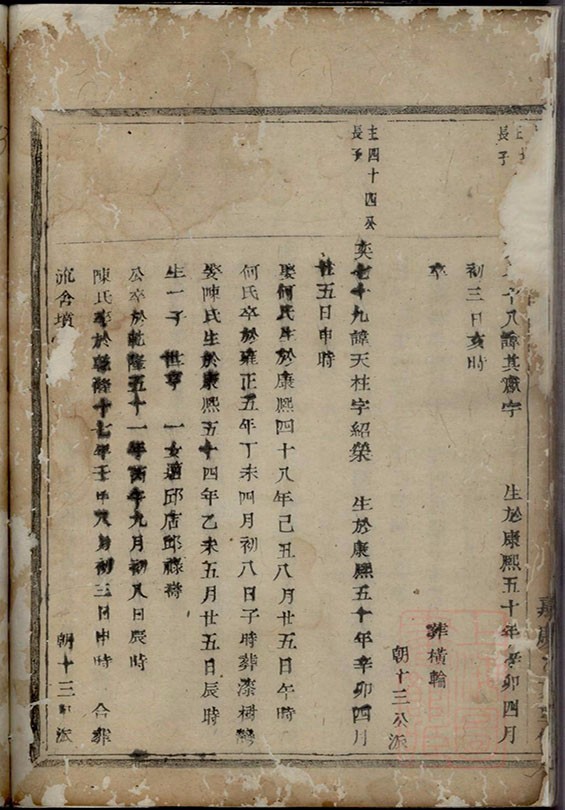 長子
十八諱其
字 生於康熙五十年辛卯四月
初三日亥時
卒 葬橫輪
朝十三公派
圭四十四公
長子
奕 十九諱天柱字紹榮 生於康熙五十年辛卯四月
廿五日申時
娶何氏生於康熙四十八年己丑八月廿五日午時
何氏卒於雍正五年丁未四月初八日子時葬
娶陳氏生於康熙五十四年乙未五月廿五日辰時
生一子 世 一女適邱店邱祿
公卒於乾隆五十一年丙午九月初八日辰時
陳氏卒於乾隆十七年壬申八月初三日申時 合葬
朝十三 派